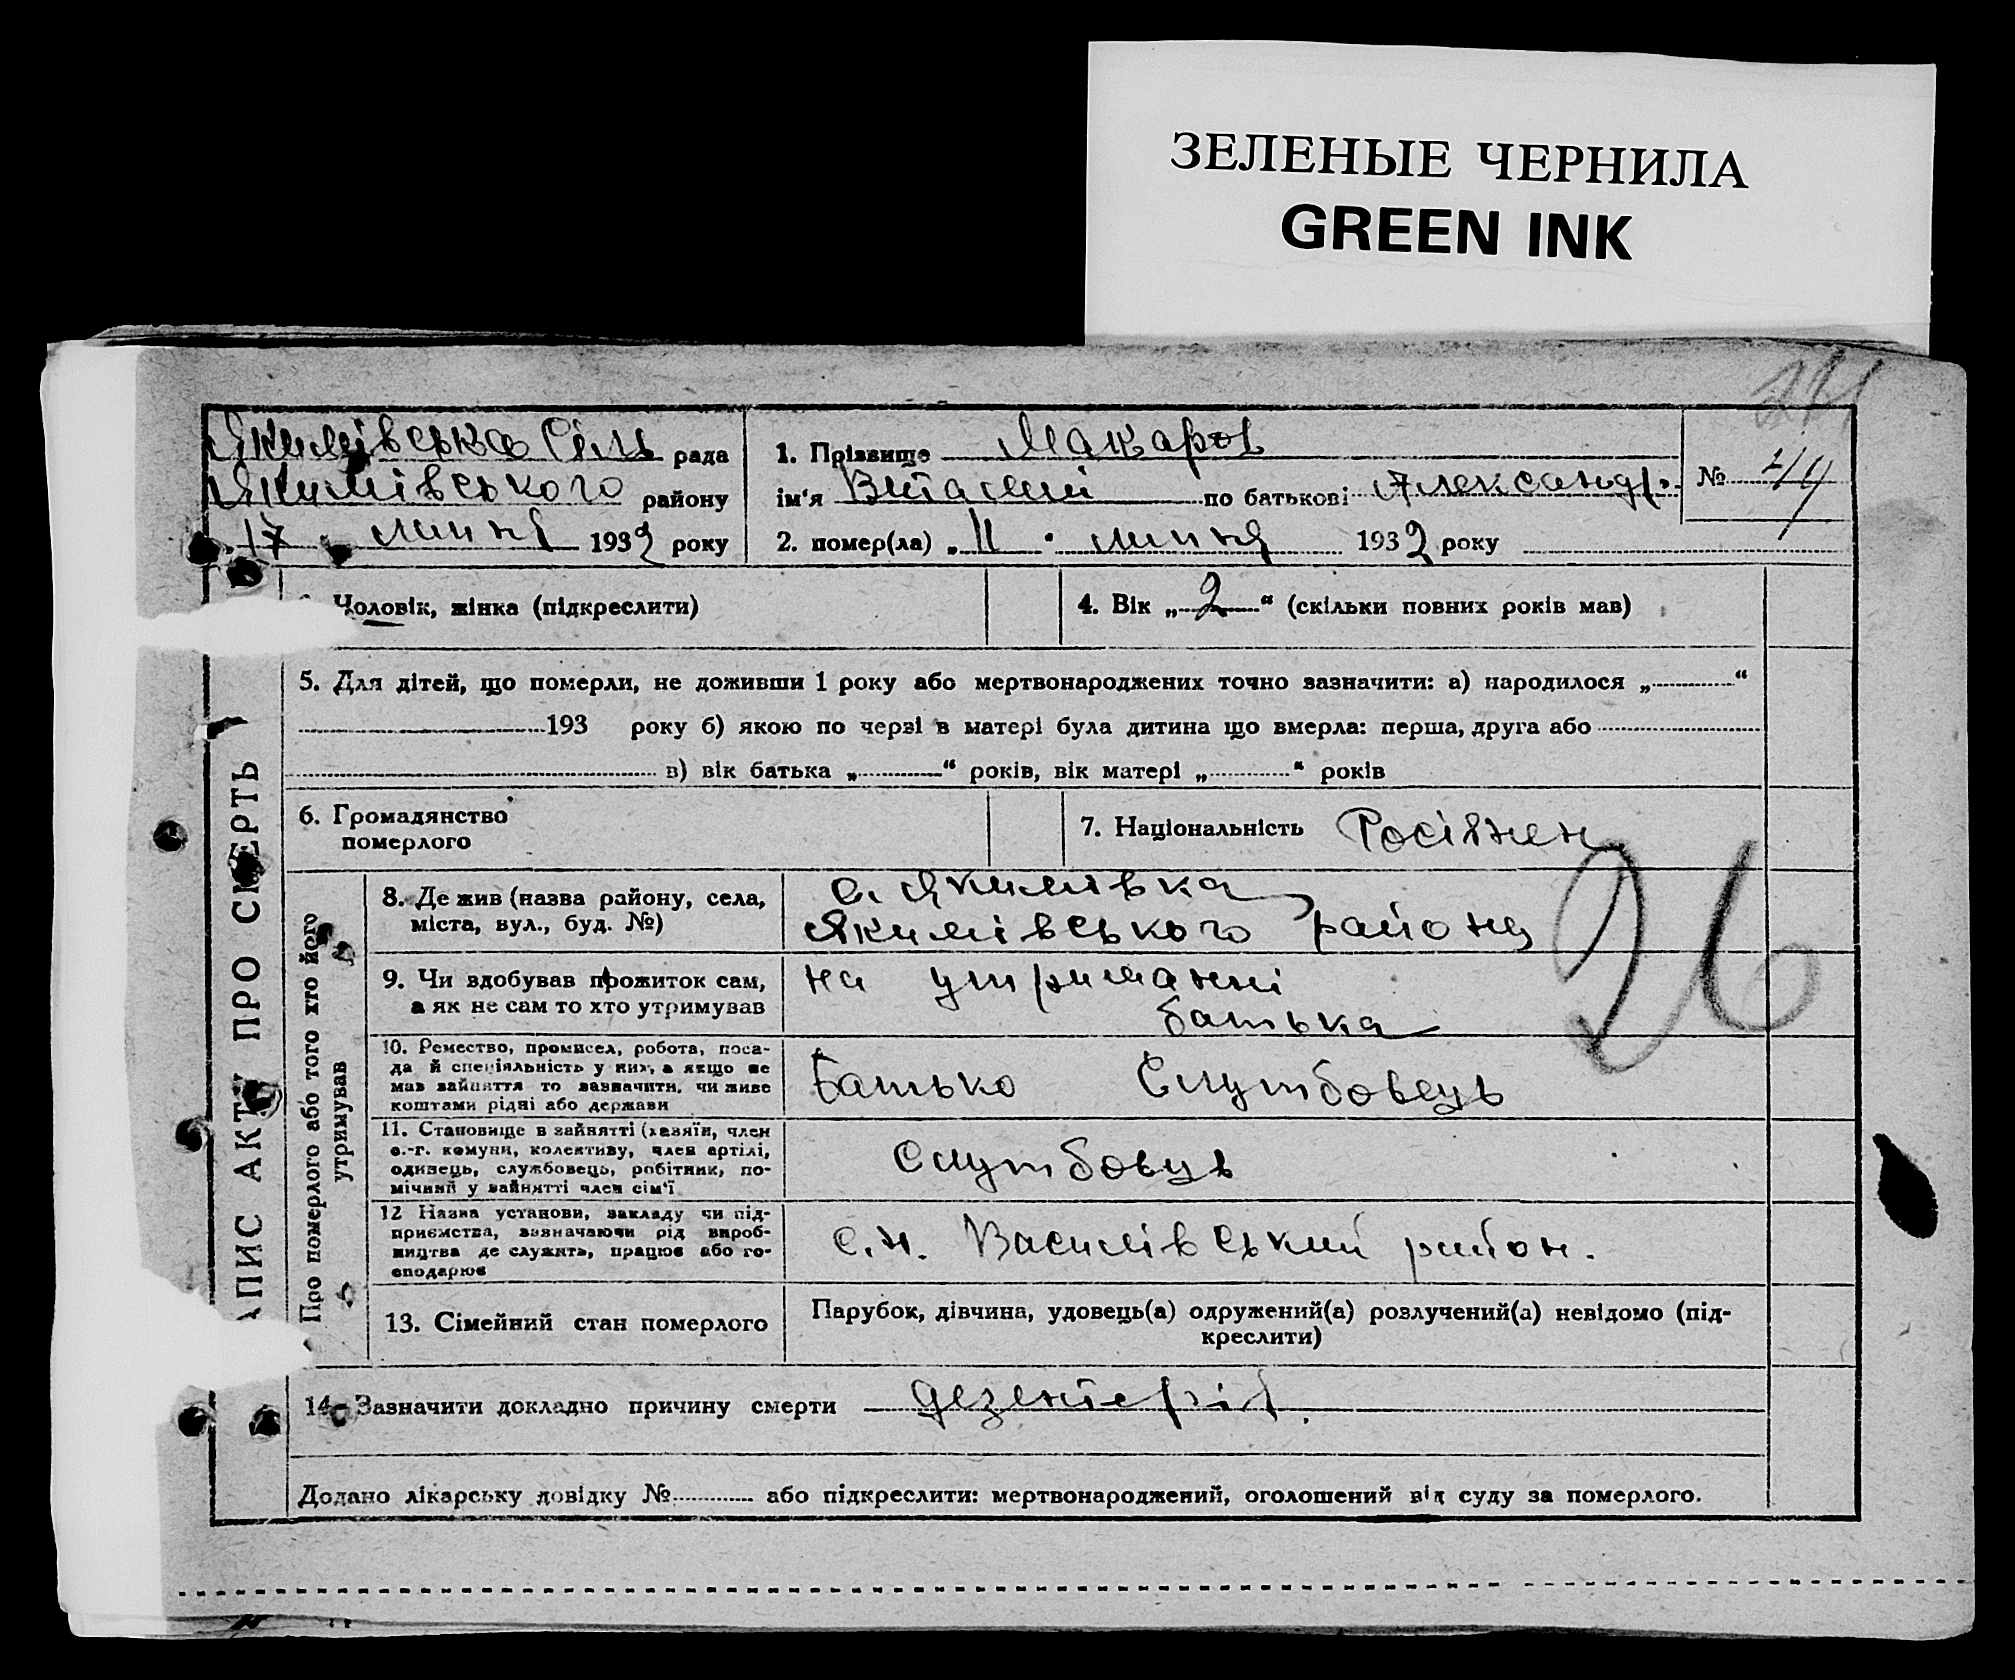 ЗЕЛЕНЫЕ ЧЕРНИЛА
GREEN INK
Якимівська Сіль рада
Якимівського району
17 липня 1932 року
1. Прізвище Макаров
ім'я Віталій по батькові Александр.
2. помер(ла) „11" липня 1932 року
№
Чоловік, жінка (підкреслити)
4. Вік „2" (скільки повних років мав)
5. Для дітей, що померли, не доживши 1 року або мертвонароджених точно зазначити: а) народилося „ "
193 року б) якою по черзі в матері була дитина що вмерла: перша, друга або
в) вік батька „ " років, вік матері „ " років
6. Громадянство
померлого
7. Національність Росіянен
АПИС АКТУ ПРО СМЕРТЬ
Про померлого або того хто його
утримував
8. Де жив (назва району, села,
міста, вул., буд. №)
с. Якимівка
Якимівського района
26
9. Чи вдобував прожиток сам,
а як не сам то хто утримував
на утриманні
батька
10. Ремество, промисел, робота, поса-
да й спеціяльність у них, а якщо не
мав зайняття то зазначити, чи живе
коштами рідні або держави
Батько Службовець
11. Становище в зайнятті (хазяїн, член
с.-г. комуни, колективу, член артілі,
одинець, службовець, робітник, по-
мічний у зайнятті член сім'ї
Службовець
12 Назва установи, закладу чи під-
приємства, зазначаючи рід вироб-
ництва де служить, працює або го-
сподарює
Василівський район.
13. Сімейний стан померлого
Парубок, дівчина, удовець(а) одружений(а) розлучений(а) невідомо (під-
креслити)
14. Зазначити докладно причину смерти дезентерія.
Додано лікарську довідку № або підкреслити: мертвонароджений, оголошений від суду за померлого.